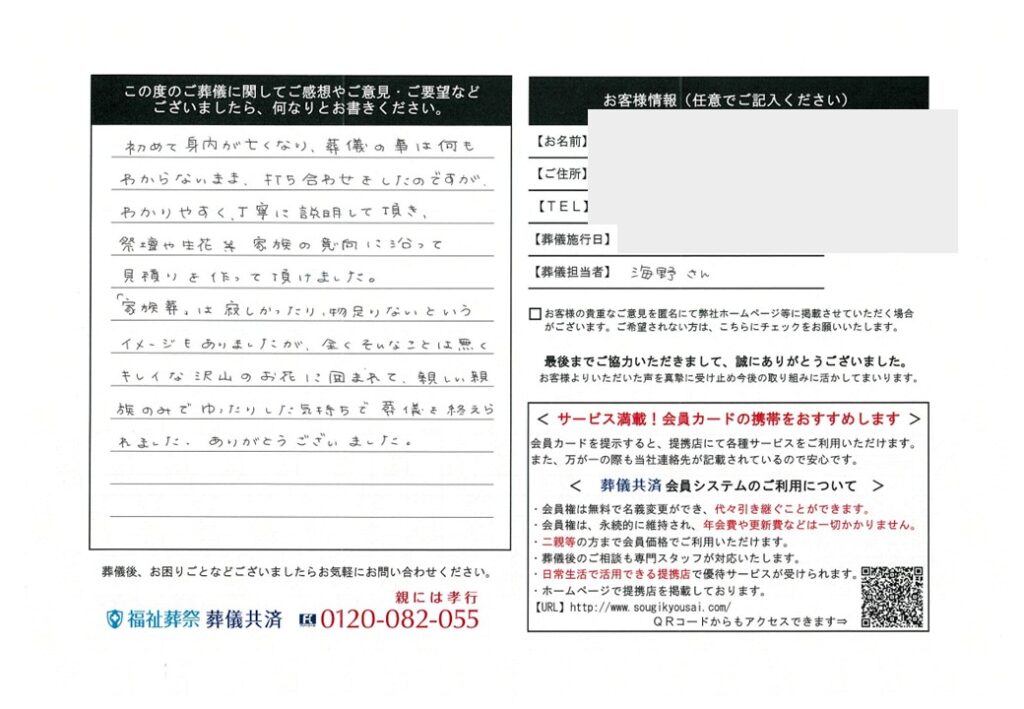 この度のご葬儀に関してご感想やご意見・ご要望など
ございましたら、何なりとお書きください。
初めて身内が亡くなり、葬儀の事は何も
わからないまま、打ち合わせをしたのですが、
わかりやすく、丁寧に説明して頂き、
祭壇や生花等 家族の意向に沿って
見積りを作って頂けました。
「家族葬」は寂しかったり、物足りないという
イメージもありましたが、全くそんなことは無く
キレイな沢山のお花に囲まれて、親しい親
族のみでゆったりした気持ちで葬儀を終えら
れました。ありがとうございました。
葬儀後、お困りごとなどございましたらお気軽にお問い合わせください。
親には孝行
福祉葬祭 葬儀共済 0120-082-055
お客様情報（任意でご記入ください）
【お名前】
【ご住所】
【ＴＥＬ】
【葬儀施行日】
【葬儀担当者】 海野さん
□お客様の貴重なご意見を匿名にて弊社ホームページ等に掲載させていただく場合
がございます。ご希望されない方は、こちらにチェックをお願いいたします。
最後までご協力いただきまして、誠にありがとうございました。
お客様よりいただいた声を真摯に受け止め今後の取り組みに活かしてまいります。
＜ サービス満載！会員カードの携帯をおすすめします ＞
会員カードを提示すると、提携店にて各種サービスをご利用いただけます。
また、万が一の際も当社連絡先が記載されているので安心です。
＜ 葬儀共済 会員システムのご利用について ＞
・会員権は無料で名義変更ができ、代々引き継ぐことができます。
・会員権は、永続的に維持され、年会費や更新費などは一切かかりません。
・二親等の方まで会員価格でご利用いただけます。
・葬儀後のご相談も専門スタッフが対応いたします。
・日常生活で活用できる提携店で優待サービスが受けられます。
・ホームページで提携店を掲載しております。
【URL】http://www.sougikyousai.com/
ＱＲコードからもアクセスできます⇒